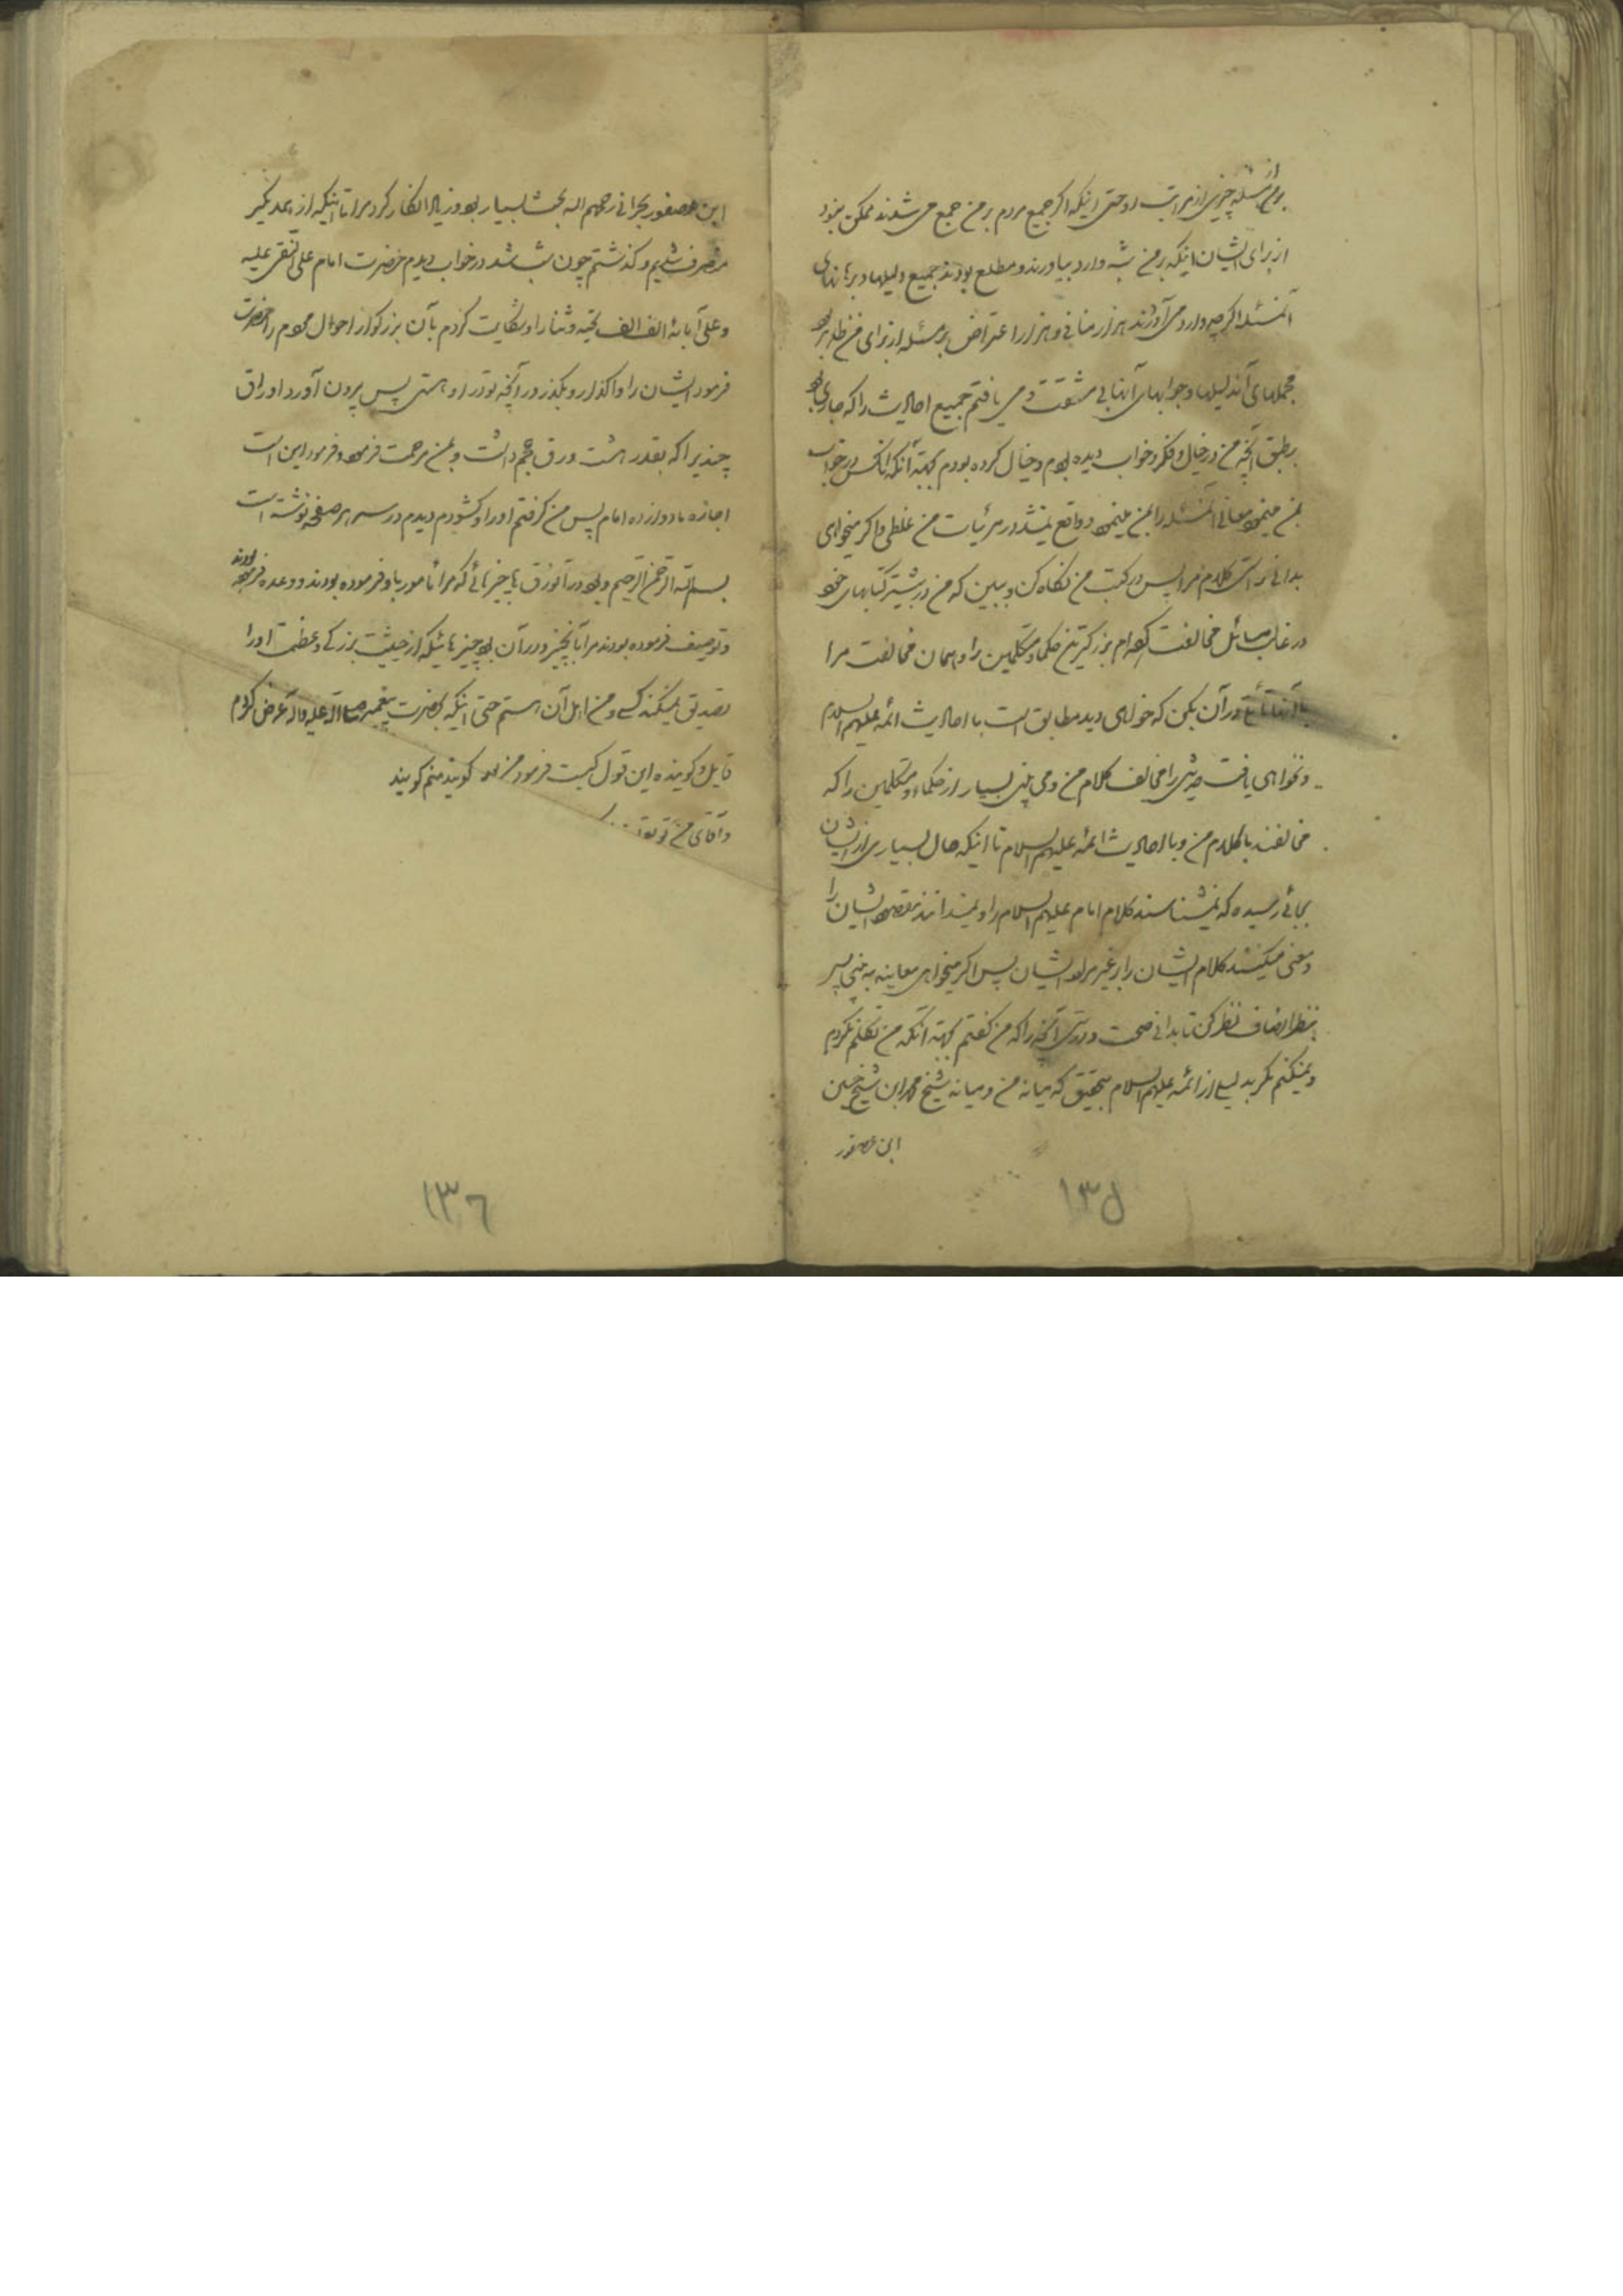 از مسئله چیزی از مراتب او حتی اینکه اگر جمیع مردم بر من جمع می شدند ممکن نبود
از برای ایشان اینکه بر من شبه وارد بیاورند و مطلع بودند جمیع دلیلها و برهانهای
آنمسئله اگرچه وارد می آورند هزار منافی و هزار اعتراض بر مسئله از برای من ظاهر بود
محملهای آندلیلها و جوابهای آنها بی مشقت و می یافتم جمیع احادیث را که جاری بود
بر طبق آنچه من در خیال و فکر و خواب دیده بودم و خیال کرده بودم بجهة آنکه آنکس در خواب
بمن مینمود معانی آنمسئله را بمن مینمود و واقع نمیشد در مرئیات من غلطی و اگر میخواهی
بدانی راستی کلام مرا پس در کتب من نگاه کن و ببین که من در بیشتر کتابهای خود
در غالب مسائل مخالفت کرده ام بزرگترین حکما و متکلمین را و همان مخالفت مرا
با آنها تأمل در آن بکن که خواهی دید مطابق است با احادیث ائمه علیهم السلام
و نخواهی یافت حدیثی را مخالف کلام من و می بینی بسیار از حکماء و متکلمین را که
مخالفند با کلام من و با احادیث ائمه علیهم السلام تا اینکه حال بسیاری از ایشان
بجائی رسیده که نمیشناسند کلام امام علیهم السلام را و نمیدانند مقصود ایشان را
و معنی میکنند کلام ایشان را بر غیر مراد ایشان پس اگر میخواهی معاینه به بینی پس
بنظر انصاف نظر کن تا بدانی صحت و درستی آنچه را که من گفتم بجهة آنکه من تکلم نکردم
و نمیکنم مگر بدلیلی از ائمه علیهم السلام بتحقیق که میانه من و میانه شیخ محمد ابن شیخ حسین
ابن عصفور
۱۳۵
ابن عصفور بحرانی رحمهم الله بحث بسیار بود و زیاد انکار کرد مرا تا اینکه از یکدیگر
منصرف شدیم و گذشتم چون شب شد در خواب دیدم حضرت امام علی النقی علیه
و علی آبائه الف الف تحیه و ثنا را و شکایت کردم بآن بزرگوار از احوال مردم را حضرت
فرمود ایشان را واگذار و بگذر در آنچه تو در او هستی پس بیرون آورد اوراق
چندی را که بقدر هشت ورق حجم داشت و بمن مرحمت فرمود و فرمود این است
اجازه ما دوازده امام پس من گرفتم او را و گشودم دیدم در سر هر صفحه نوشته است
بسم الله الرحمن الرحیم و بود در آنورق چیزهائی که مرا مأمور باو فرموده بودند و وعده فرموده بودند
و توصیف فرموده بودند مرا بآنچیز و در آن بود چیزهائیکه از حیثیت بزرگی و عظمت او را
تصدیق نمیکند کسی و من اهل آن هستم حتی اینکه بحضرت پیغمبر صلی الله علیه و آله عرض کردم
قایل و گوینده این قول کیست فرمود من گویند منم گویند
و آقای من تو
۱۳۶